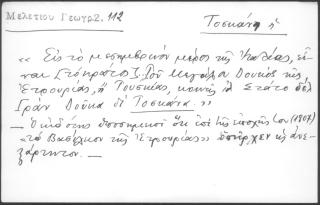 Μελετίου Γεωγρ. 112
Τοσκάνα ἡ
« Εἰς τὸ μεσημβρινὸν μέρος τῆς Ἰταλίας, εἶ-
ναι τὸ κράτος τοῦ Μεγάλου Δουκὸς τῆς
Ἐτρουρίας, ἢ Τουσκίας, κοινῶς λ. Στάτο δελ
Γρὰν Δούκα δι Τοσκάνα. »
— Ὁ ἐκδότης ὑποσημειοῖ ὅτι ἐπὶ τῆς ἐποχῆς του (1807)
«τὸ Βασίλειον τῆς Ἐτρουρίας» ὑπῆρχεν ὡς ἀνε-
ξάρτητον. —